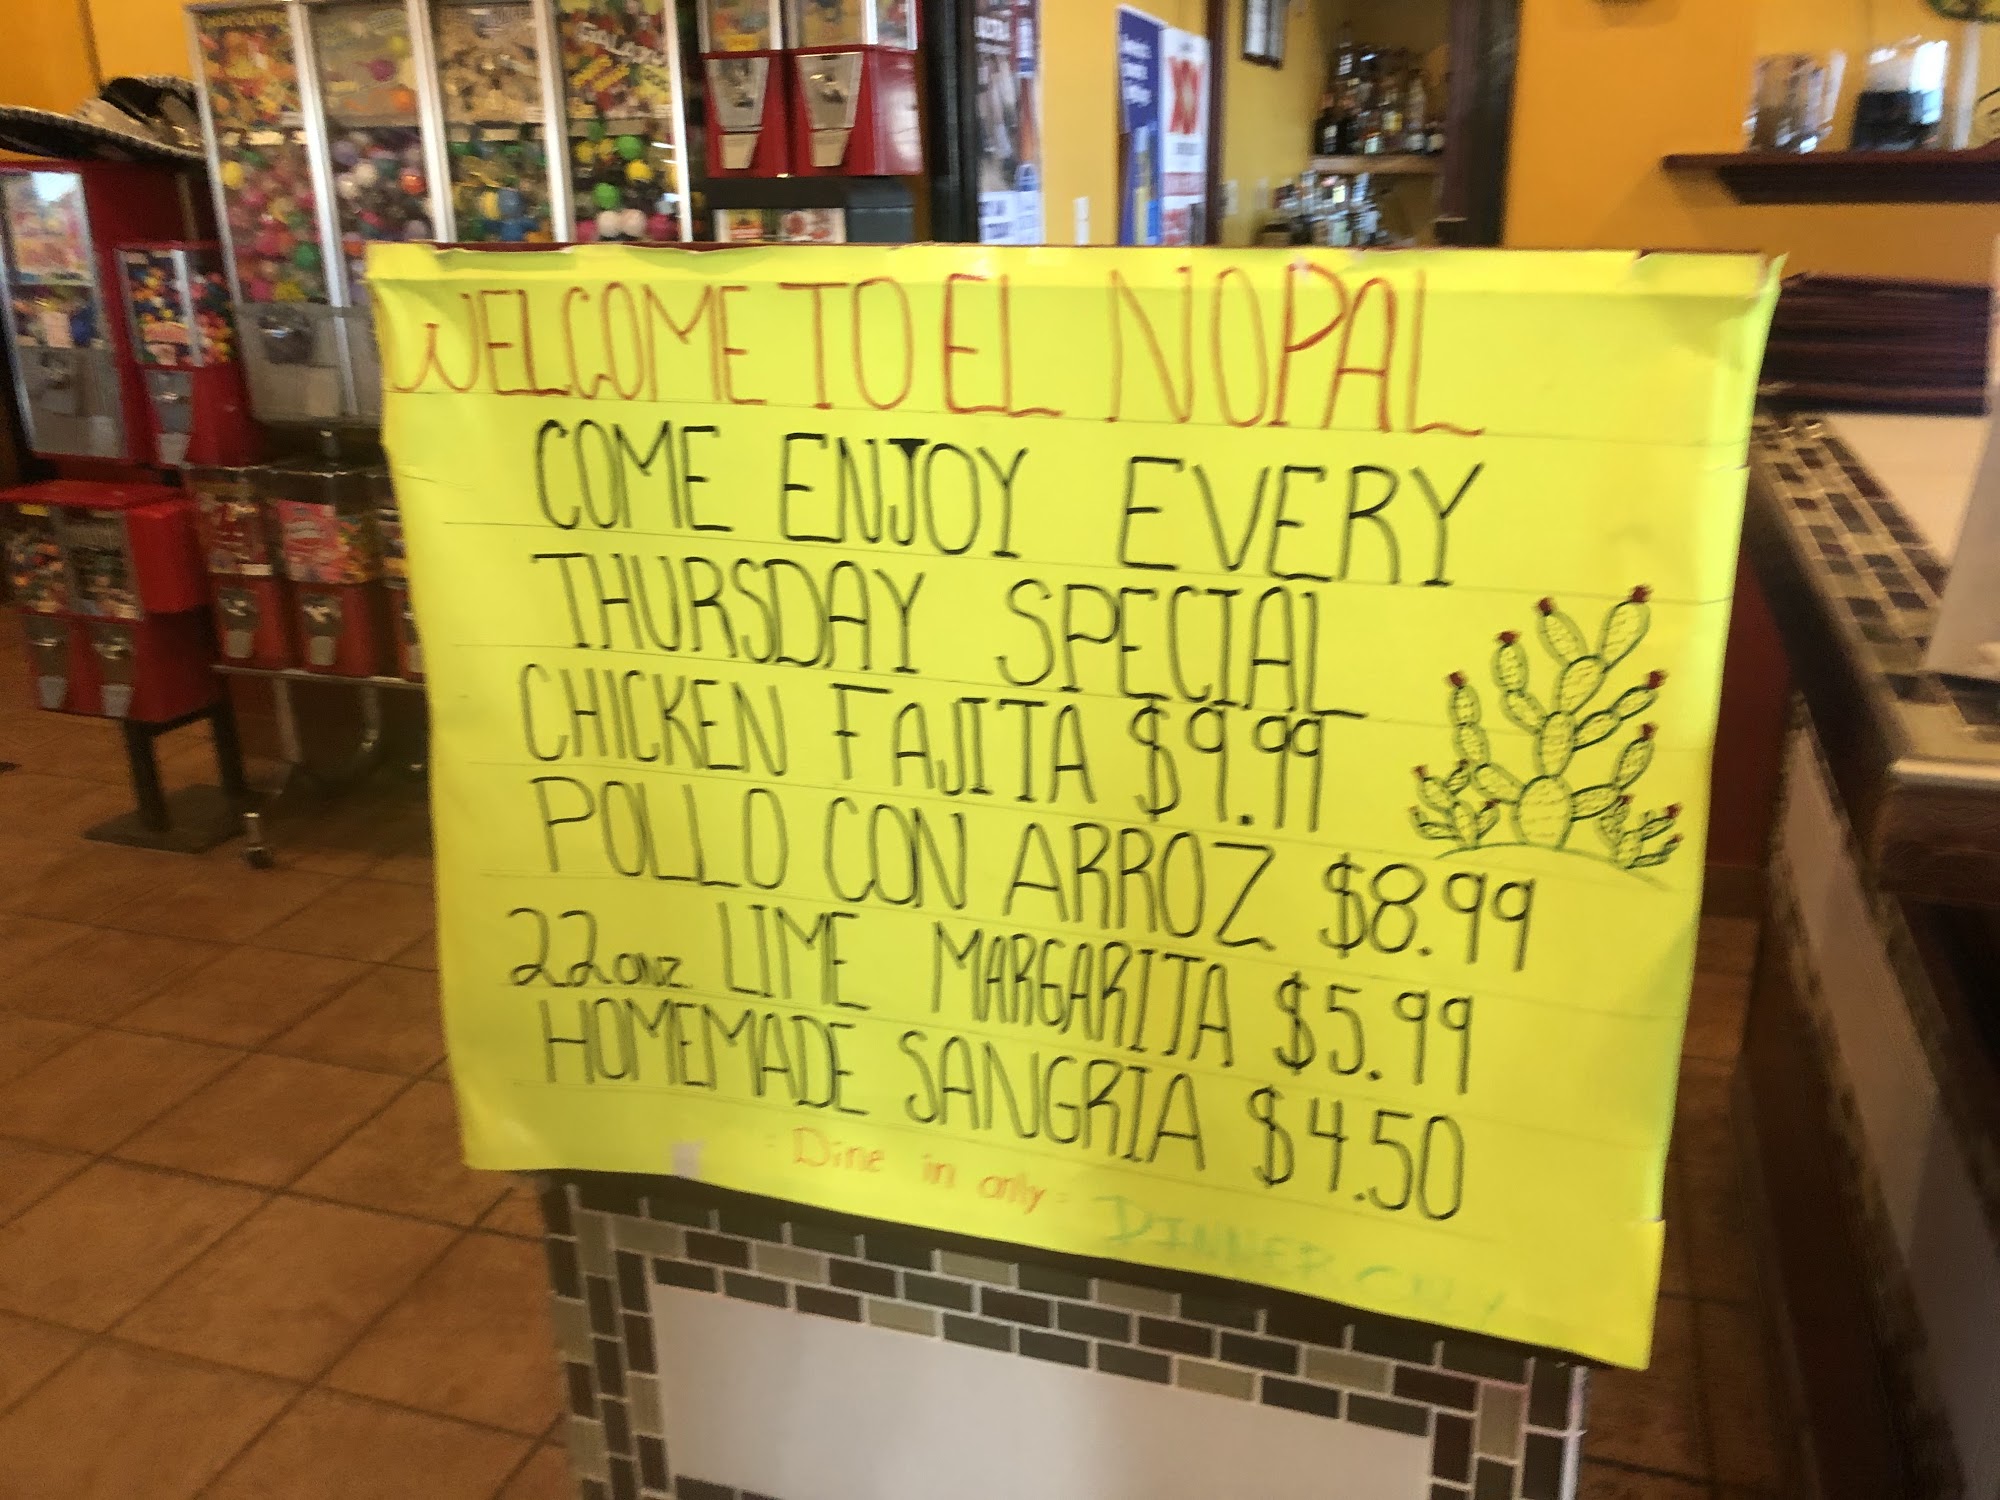 WELCOME TO EL NOPAL
COME ENJOY EVERY
THURSDAY SPECIAL
CHICKEN FAJITA $9.99
POLLO CON ARROZ $8.99
22onz. LIME MARGARITA $5.99
HOMEMADE SANGRIA $4.50
= Dine in only =
DINNER ONLY